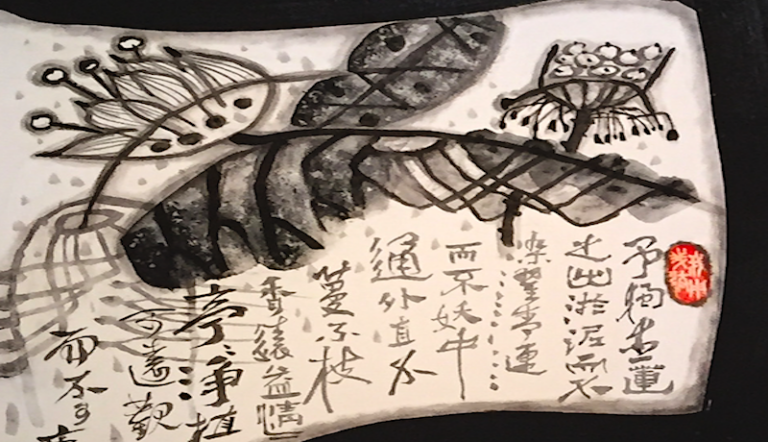 予獨愛蓮
之出淤泥而不
染濯清漣
而不妖中
通外直不
蔓不枝
香遠益清
亭亭淨植
可遠觀
而不可